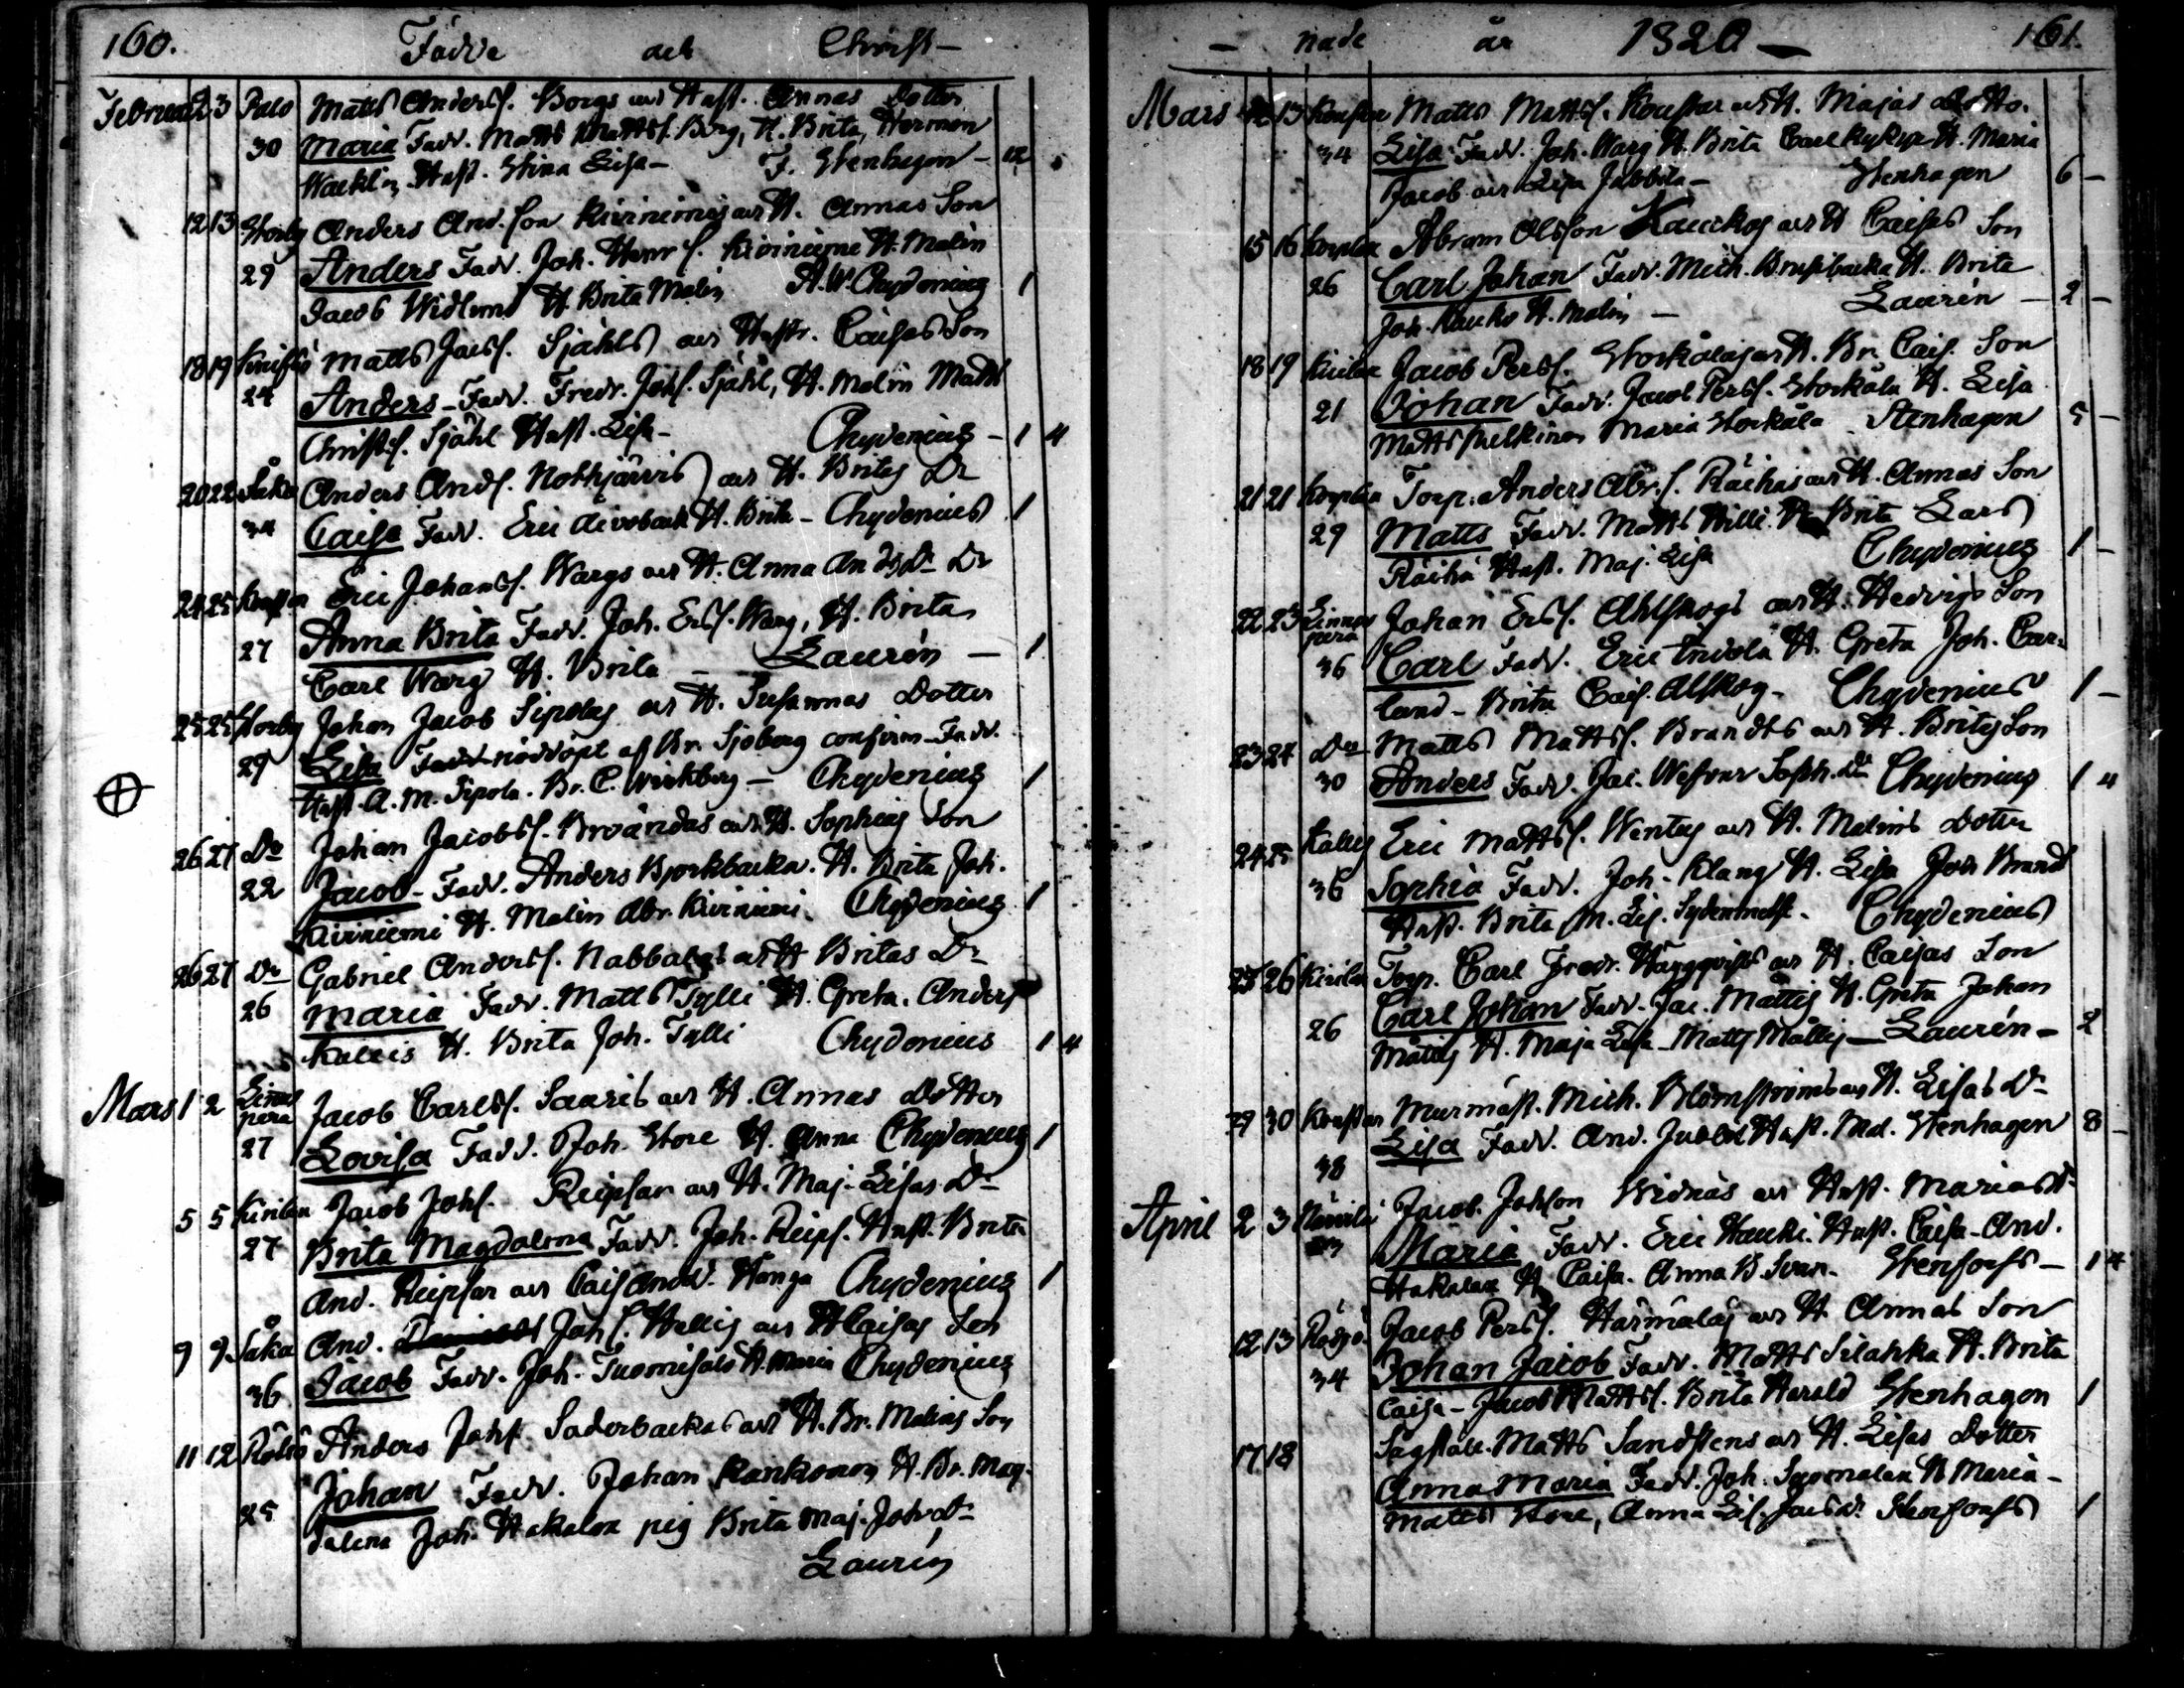 160. Födde och Christ-
Februari 2 3 Palo Matts Anderss. Borgs och Hust. Annas Dotter
30 Maria Fadd. Matts Mattss. Borg, H. Brita, Herman
Wacklin Hust. Stina Lisa - F. Stenhagen - 12
12 13 Storby Anders And.son Kiviniemis och H. Annas Son
29 Anders Fadd. Joh. Henr s. Kiviniemi H. Malin
Jacob Widlund H. Brita Malin A. W. Chydenius 1
18 19 Matts Jacss. Sjähls och Hustr. Caisas Son
24 Anders - Fadd. Fredr. Johs. Sjähl, H. Malin Matts
Christ.s. Sjähl Hust. Lisa - Chydenius - 1 4
20 22 Såka Anders Ands. Notkjärvis och H. Britas Dr
34 Caisa Fadd. Eric H. Brita - Chydenius 1
24 25 Eric Johanss. Wargs och H. Anna Ands Dr Dr
27 Anna Brita Fadd. Joh. Erss. Warg, H. Brita
Carl Warg H. Brita - Laurén - 1
25 25 Storby Johan Jacob Sipolas och H. Susannas Dotter
29 Lisa Fadd nöddöpt af Br. Sjöberg confirm - Fadd.
Hust. A. M. Sipola. Br. C. Wirkberg - Chydenius 1
26 27 Do Johan Jacobss. Brändas och H. Sophias Son
22 Jacob - Fadd. Anders Björkbacka. H. Brita Joh.
Kiviniemi H. Malin Abr. Kiviniemi. Chydenius 1
26 27 Do Gabriel Anderss. Nabbalas och H Britas Dr
26 Maria Fadd. Matts Tylli H. Greta. Anders
Kalleis H. Brita Joh. Tylli Chydenius 1 4
Mars 1 2 Linnus pera Jacob Carlss. Saaris och H. Annas Dotter
27 Lovisa Fadd. Joh. Store H. Anna Chydenius 1
5 5 Kirilax Jacob Johs. Reipsar och H. Maj. Lisas Dr
27 Brita Magdalena Fadd. Joh. Reips. Hust. Brita
And. Reipsar och Cais Andd. Honga Chydenius 1
9 9 Såka And. Joh s. Hellis och H Caisas Son
36 Jacob Fadd. Joh. Tuomisalo H. Maria Chydenius
11 12 Rödsö Anders Johs. Söderbackas och H. Br. Malins Son
25 Johan Fadd. Johan Kankonen H. Br. Mag-
dalena Joh. Hakalax pig Brita Maj. Johs Dr
Laurén
- nade år 1820 - 161.
Mars 12 13 Matts Mattss. och H. Majas Dotter
34 Lisa Fadd. Joh. Warg H. Brita Carl H. Maria
Jacob och Lisa Jubbila - Stenhagen 6 -
15 16 Abram Olsson Kauckos och H Caisas Son
26 Carl Johan Fadd. Mich. H. Brita
Joh. Kauko H. Malin - Laurén - 2 -
18 19 Kirilax Jacob Perss. Storkålas och H. Br. Cais. Son
21 Johan Fadd. Jacob Perss. Storkåla H. Lisa
Matts Maria Storkåla Stenhagen 5 -
21 21 Torp. Anders Abr.s. Räihäs och H. Annas Son
29 Matts Fadd. Matts Hilli H Brita Lars
Räihä Hust. Maj. Lisa Chydenius 1 -
22 23 Linnus pera Johan Erss. Ahlskogs och H. Hedvigs Son
36 Carl Fadd. Eric Indola H. Greta Joh. Car-
land - Brita Cais. Alskog - Chydenius 1 -
23 24 Do Matts Mattss. Brandts och H. Britas Son
30 Anders Fadd. Jac. Chydenius 1 4
24 25 Kalleis Eric Mattss. Wentus och H. Malins Dotter
36 Sophia Fadd. Joh. Klang H. Lisa Joh Brand
Hust. Brita M. Lis. Chydenius
25 26 Kirilax Torp. Carl Fredr. Häggqvists och H. Caisas Son
26 Carl Johan Fadd. Jac. Mattis H. Greta Johan
Mattis H. Maja Lisa - Matts Mattis - Laurén - 2
29 30 Murmäst. Mich. Blomströms och H. Lisas Dr
38 Lisa Fadd. And. Hust. Mal. Stenhagen 8 -
April 2 3 Jacob Johsson Widnäs och Hust. Marias Dr
Maria Fadd. Eric Hauki. Hust. Caisa - And.
Hakalax H Caisa. Anna B. Svan. Stenfors - 1 4
12 13 Rödsö Jacob Perss. Härmäläs och H Annas Son
34 Johan Jacob Fadd. Matts Silakka H. Brita
Caisa - Jacob Mattss. Brita Harald Stenhagen 1
17 18 Sågställ. Matts Sandstens och H. Lisas Dotter
Anna Maria Fadd. Joh. H Maria -
Matts Store, Anna Lis. Jacs Dr. Stenfors 1